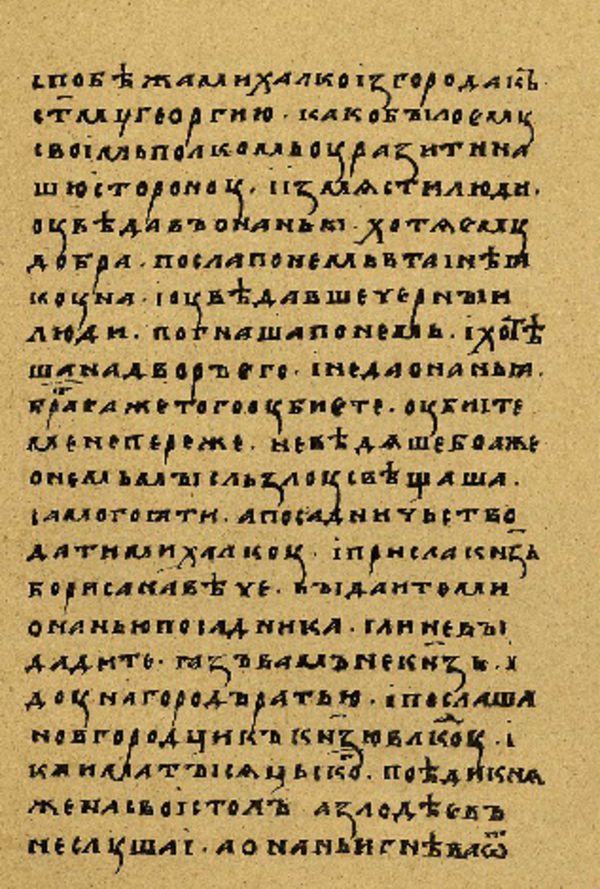 спобѣжамихалкоізгородакъ
ст҃мꙋгеоргию · какобꙑлоемꙋ
своімьполкомьоуразитина
шюстороноу · иізмѧстилюди ·
оувѣдавъонаньꙗ · хотѧемꙋ
добра · послапонемьвтаінѣꙗ
коуна · іоувѣдавшечерныи
люди · погнашапонемь · іхотѣ
шанадворъего · інедаонаньꙗ ·
братажетогооубиете · оубиіте
мене переже · невѣдѧшебоаже
онемьмꙑсльзлоусвѣщаша ·
самогоꙗти · апосадничьство
датимихалкоу · іприслакнѧ҃зь
борисанавѣче · выдаитеми
онаньюпосадника · іливевꙑ
дадите · ꙗзъвамънекнѧ҃зь · і
доунагородъратью · іпослаша
новгородцикъкнѧ҃зювлкоу · і
климатꙑсѧцьско҃ · поѣдикнѧ
женасвоістолъ азлодѣевъ
неслушаі · аонаньигнѣваѿ